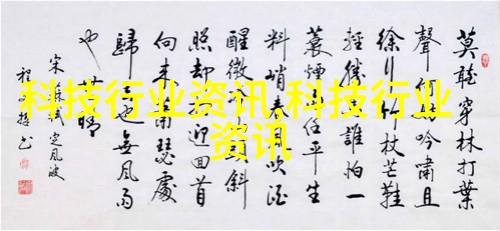 科技行业资讯,科技行业
资讯
莫聽穿林打葉
聲吟嘯且
徐行杖芒鞋
輕勝誰怕一
蓑煙任平生
料峭春吹酒
醒微斜
照却迎回首
向来蕭瑟處
歸也無風雨
也晴
宋軾定風波